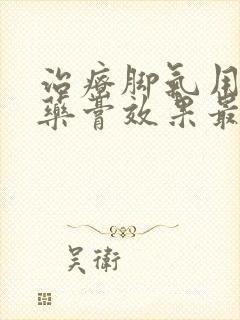 治疗脚氣用
藥膏效果最
吴衛